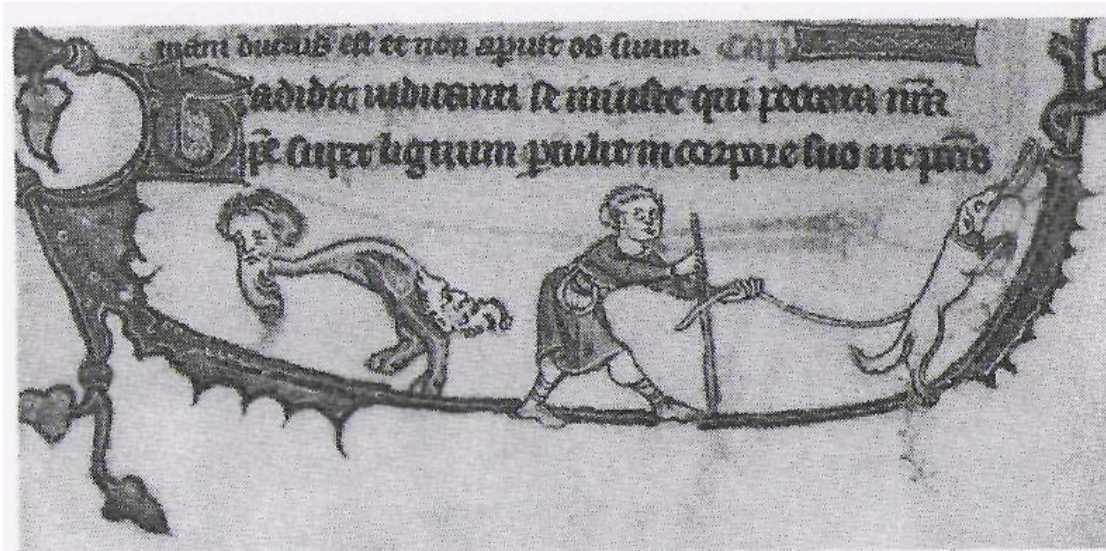 mam ductus est et non apuit os suum. Cap
Tradidit iudicanti se iniuste qui peccata nr̄a
ip̄e super lignum ptulit in corpore suo ut